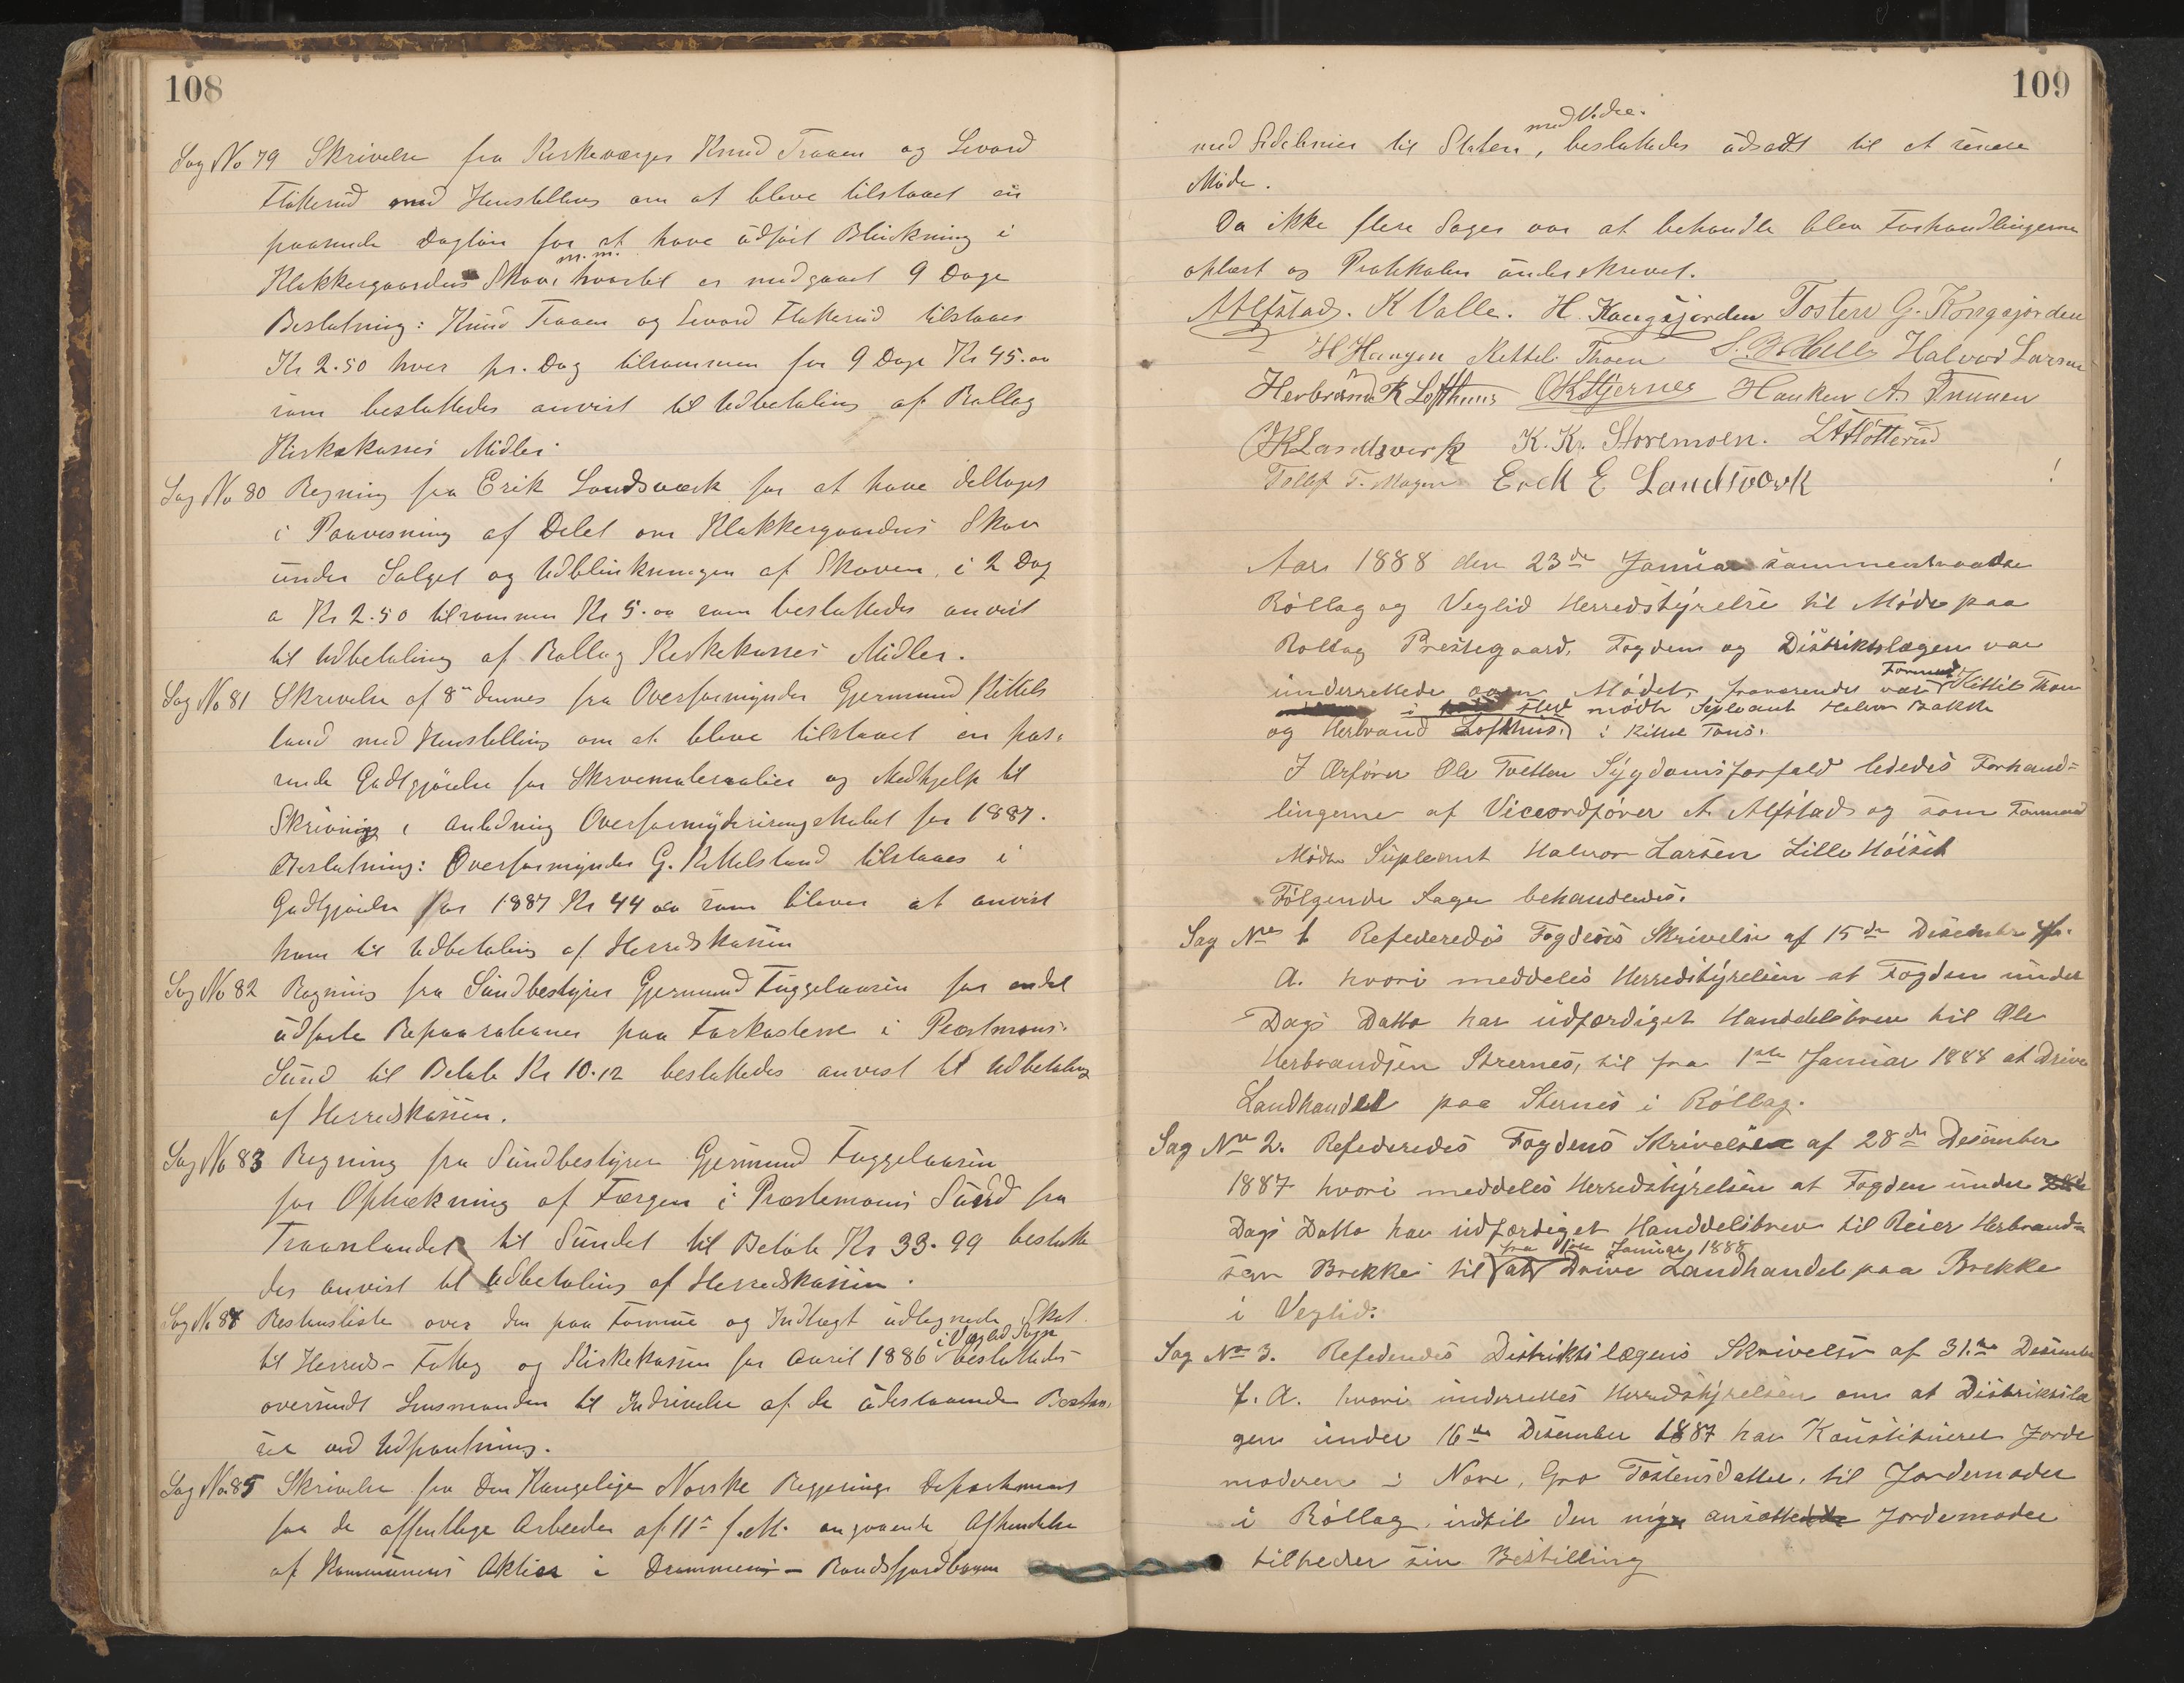 108
Sag No 79 Skrivelse fra Kirkeværger Knud Traaen og Sevard
Flatterud med Henstilling om at blive tilstaaet en
passende Dagløn for at have udført Blinkning i
m.m.
Klakkergaardens Skov, hvortil er medgaaet 9 Dage
Beslutning: Knud Traaen og Sevard Flatterud tilstaaes
Kr 2.50 hver pr. Dag tilsammen for 9 Dage Kr 45.00
som besluttedes anvist til Udbetaling af Rollag
Kirkekasses Midler.
Sag No 80 Regning fra Erik Landsværk for at have deltaget
i Paavisning af Delet om Klakkergaardens Skov
under Salget og Udblinkningen af Skoven, i 2 Dag
a Kr 2.50 tilsammen Kr 5.00 som besluttedes anvist
til Udbetaling af Rollag Kirkekasses Midler.
Sag No 81 Skrivelse af 8de dennes fra Overformynder Gjermund Kittels
land med Henstilling om at blive tilstaaet en pas-
sende Godtgjørelse for Skrivematerialier og Medhjelp til
Skrivning i Anledning Overformynderiregnskabet for 1887.
Beslutning: Overformynder G. Kittelsland tilstaaes i
Godtgjørelse for 1887 Kr 44 00 som bliver at anvist
ham til Udbetaling af Herredskassen
Sag No 82 Regning fra Sundbestyrer Gjermund Fuggelaasen for endel
udførte Reparationer paa Farkosterne i Præstmoens
Sund til Beløb Kr 10.12 besluttedes anvist til Udbetaling
af Herredskassen.
Sag No 83 Regning fra Sundbestyrer Gjermund Fuggelaasen
for Optrækning af Færgen i Præstemoens Sund fra
Traanlandet til Sundet til Beløb Kr 33.99 beslutte
des anvist til Udbetaling af Herredskassen.
Sag No 84 Restanseliste over den paa Formue og Indtægt udlignede Skat
i Veglid Sogn
til Herreds- Fattig og Kirkekassen for Aaret 1886 besluttedes
oversendt Lensmanden til Inddrivelse af de udestaaende Restan,
ser ved Udpantning.
Sag No 85 Skrivelse fra Den Kongelige Norske Regjerings Departement
for de offentlige Arbeider af 11te f.M. angaaende Afhendelse
af Kommunens Aktier i Drammens - Randsfjordbanen
109
med Videre.
med Sidelinier til Staten, besluttedes udsadt til et senere
Møde.
Da ikke flere Sager var at behandle blev Forhandlingerne
oplæst og Protokolen underskrevet.
A Alfstad. K Valle. H. Kongsjorden Tosten G. Kongsjorden
H Haugen Kettel Thoen Halvor Larsen
Herbrand K Lofthuus OKStjernes Hanken A. Traaen
OKLandsverk K. Kr. Storemoen. LAFlotterud
Tollef T. Mogen Erek E Landsværk
Aar 1888 den 23de Januar sammentraadte
Rollag og Veglid Herredstyrelse til Møde paa
Rollag Prestegaard, Fogden og Distriktslægen var
Formand
underrettede om Mødet, fraværende var Kittil Thoen
i Sted mødte Supleant Halvor Bakke
og Herbrand Lofthus. i Kittel Tons.
I Orfører Ole Tvetten Sygdomsforfald lededes Forhand=
lingerne af Viceordfører A. Alfstad og som Formand
Mødte Supleant Halvor Larsen Lille Høiset
Følgende Sager behandledes.
Sag No 1 Refereredes Fogdens Skrivelse af 15de Desember f.
A. hvori meddeles Herredstyrelsen at Fogden under
Dags Datto har udfærdiget Handdelsbrev til Ole
Herbrandsen Sternes, til fra 1ste Januar 1888 at Drive
Landhandel paa Sternes i Rollag.
Sag No 2. Refereredes Fogdens Skrivelse af 28de Desember
1887 hvori meddeles Herredstyrelsen at Fogden under
Dags Datto har udfærdiget Handdelsbrev til Reier Herbrand=
fra 1ste Januar 1888
sen Brekke til at Drive Landhandel paa Brekke
i Veglid.
Sag No 3. Refereredes Distriktslægens Skrivelse af 31.te Desember
f. A. hvori underrettes Herredstyrelsen om at Distriktslæ
gen under 16de Desember 1887 har Konstitueret Jorde
moderen i Nore, Gro Tostensdatter, til Jordemoder
i Rollag indtil den nye ansatte Jordemoder
tilheder sin Bestilling